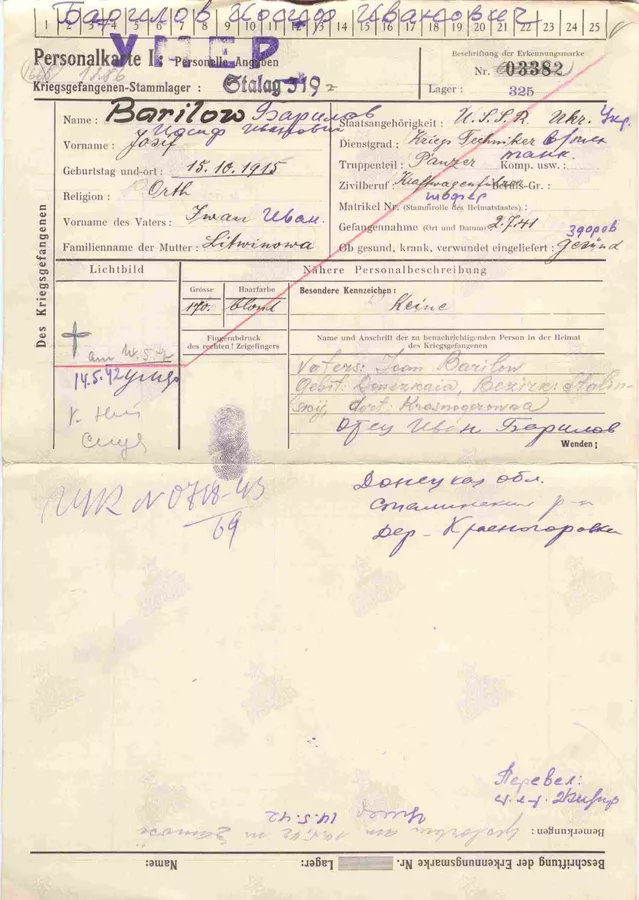 Барилов Иосиф Иванович
1 2 3 4 5 6 7 8 9 10 11 12 13 14 15 16 17 18 19 20 21 22 23 24 25
УМЕР
Personalkarte I: Personelle Angaben
Kriegsgefangenen-Stammlager: Stalag 319
Beschriftung der Erkennungsmarke
Nr. 03382
Lager: 325
Des Kriegsgefangenen
Name: Barilow Барилов
Иосиф Иванович
Vorname: Josif
Geburtstag und-ort: 15.10.1915
Religion: Orth
Vorname des Vaters: Iwan Иван.
Familienname der Mutter: Litwinowa
Staatsangehörigkeit: U.S.S.R. Ukr. Укр.
Dienstgrad: Kriegs Techniker
Truppenteil: Panzer танк. Komp. usw.:
Zivilberuf: Kraftwagenführer Berufs-Gr.:
шофер
Matrikel Nr. (Stammrolle des Heimatstaates):
Gefangennahme (Ort und Datum): 2.7.41
здоров
Ob gesund, krank, verwundet eingeliefert: Gesund
Lichtbild
am 14.5.42
14.5.42 умер
Nähere Personalbeschreibung
Grösse
Haarfarbe
170. blond
Fingerabdruck
des rechten! Zeigefingers
Besondere Kennzeichen:
Keine
Name und Anschrift der zu benachrichtigenden Person in der Heimat
des Kriegsgefangenen
Vaters: Iwan Barilow
Gebit: Donezkaia, Bezirk: Stalin-
skij, dort: Krasnogorowka
отец Иван Барилов
Wenden!
N 0718-43
69
Донецкая обл.
Сталинский р-н
дер- Красногоровка
Перевел:
умер 14.5.42
Bemerkungen: gestorben am 14.5.42 in Zamość
Beschriftung der Erkennungsmarke Nr. Lager: Name: